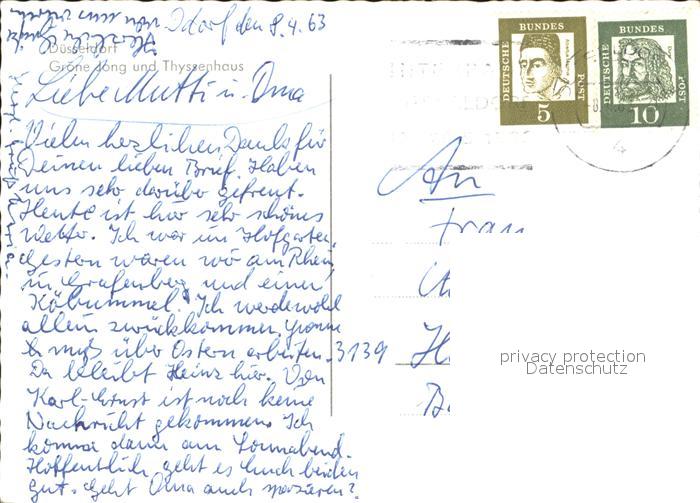 Ddorf den 8.4.63
Düsseldorf
Gröne Jong und Thyssenhaus
Liebe Mutti u. Oma
Vielen herzlichen Dank für
Deinen lieben Brief. Haben
uns sehr darüber gefreut.
Heute ist hier sehr schönes
Wetter. Ich war im Hofgarten,
gestern waren wir am Rhein,
in Grafenberg und einen
Köbummel. Ich werde wohl
allein zurückkommen, Yvonne
muß über Ostern arbeiten.
Da bleibt Heinz hier. Von
Karl-Ernst ist noch keine
Nachricht gekommen. Ich
komme dann am Sonnabend.
Hoffentlich geht es Euch beiden
gut. Geht Oma auch spazieren?
DEUTSCHE
BUNDES
POST
5
DEUTSCHE
BUNDES
POST
10
4
An
Frau
3139 H
B
privacy protection
Datenschutz